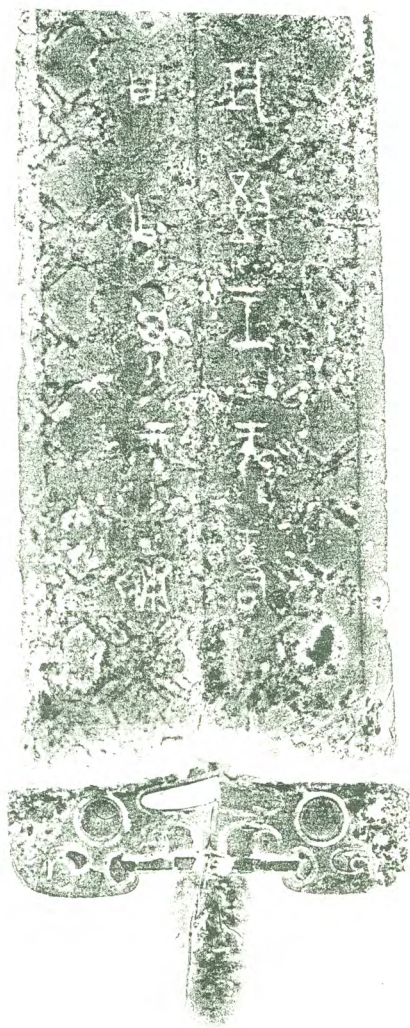 攻敔王夫差
自乍其元用